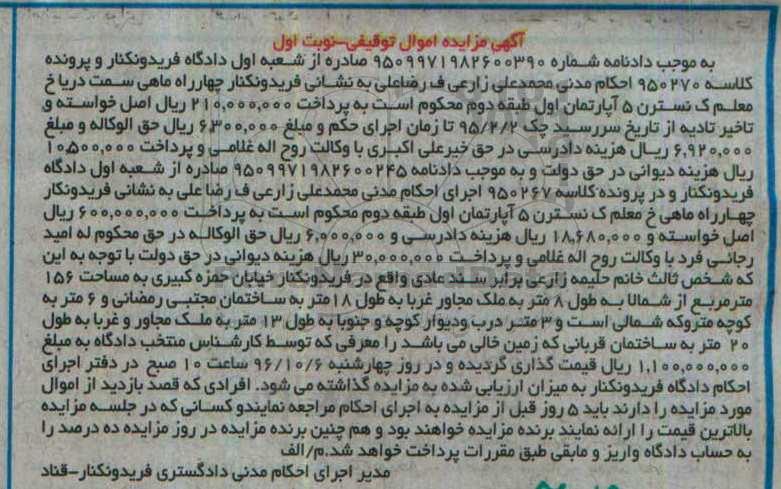 آگهی مزایده اموال توقیفی-نوبت اول
به موجب دادنامه شماره ۹۵۰۹۹۷۱۹۸۲۶۰۰۳۹۰ صادره از شعبه اول دادگاه فریدونکنار و پرونده
کلاسه ۹۵۰۲۷۰ احکام مدنی محمدعلی زارعی ف رضاعلی به نشانی فریدونکنار چهارراه ماهی سمت دریا خ
معلم ک نسترن ۵ آپارتمان اول طبقه دوم محکوم است به پرداخت ۲۱۰,۰۰۰,۰۰۰ ریال اصل خواسته و
تاخیر تادیه از تاریخ سررسید چک ۹۵/۲/۲ تا زمان اجرای حکم و مبلغ ۶,۳۰۰,۰۰۰ ریال حق الوکاله و مبلغ
۶,۹۲۰,۰۰۰ ریال هزینه دادرسی در حق خیرعلی اکبری با وکالت روح اله غلامی و پرداخت ۱۰,۵۰۰,۰۰۰
ریال هزینه دیوانی در حق دولت و به موجب دادنامه ۹۵۰۹۹۷۱۹۸۲۶۰۰۲۴۵ صادره از شعبه اول دادگاه
فریدونکنار و در پرونده کلاسه ۹۵۰۲۶۷ اجرای احکام مدنی محمدعلی زارعی ف رضا علی به نشانی فریدونکار
چهارراه ماهی خ معلم ک نسترن ۵ آپارتمان اول طبقه دوم محکوم است به پرداخت ۶۰۰,۰۰۰,۰۰۰ ریال
اصل خواسته و ۱۸,۶۸۰,۰۰۰ ریال هزینه دادرسی و ۶,۰۰۰,۰۰۰ ریال حق الوکاله در حق محکوم له امید
رجائی فرد با وکالت روح اله غلامی و پرداخت ۳۰,۰۰۰,۰۰۰ ریال هزینه دیوانی در حق دولت با توجه به این
که شخص ثالث خانم حلیمه زارعی برابر سند عادی واقع در فریدونکنار خیابان حمزه کبیری به مساحت ۱۵۶
مترمربع از شمالا به طول ۸ متر به ملک مجاور غربا به طول ۱۸ متر به ساختمان مجتبی رمضانی و ۶ متر به
کوچه متروکه شمالی است و ۳ متر درب ودیوار کوچه و جنوبا به طول ۱۳ متر به ملک مجاور و غربا به طول
۲۰ متر به ساختمان قربانی که زمین خالی می باشد را معرفی که توسط کارشناس منتخب دادگاه به مبلغ
۱,۱۰۰,۰۰۰,۰۰۰ ریال قیمت گذاری گردیده و در روز چهارشنبه ۹۶/۱۰/۶ ساعت ۱۰ صبح در دفتر اجرای
احکام دادگاه فریدونکنار به میزان ارزیابی شده به مزایده گذاشته می شود. افرادی که قصد بازدید از اموال
مورد مزایده را دارند باید ۵ روز قبل از مزایده به اجرای احکام مراجعه نمایندو کسانی که در جلسه مزایده
بالاترین قیمت را ارائه نمایند برنده مزایده خواهند بود و هم چنین برنده مزایده در روز مزایده ده درصد را
به حساب دادگاه واریز و مابقی طبق مقررات پرداخت خواهد شد.م/الف
مدیر اجرای احکام مدنی دادگستری فریدونکنار-قناد